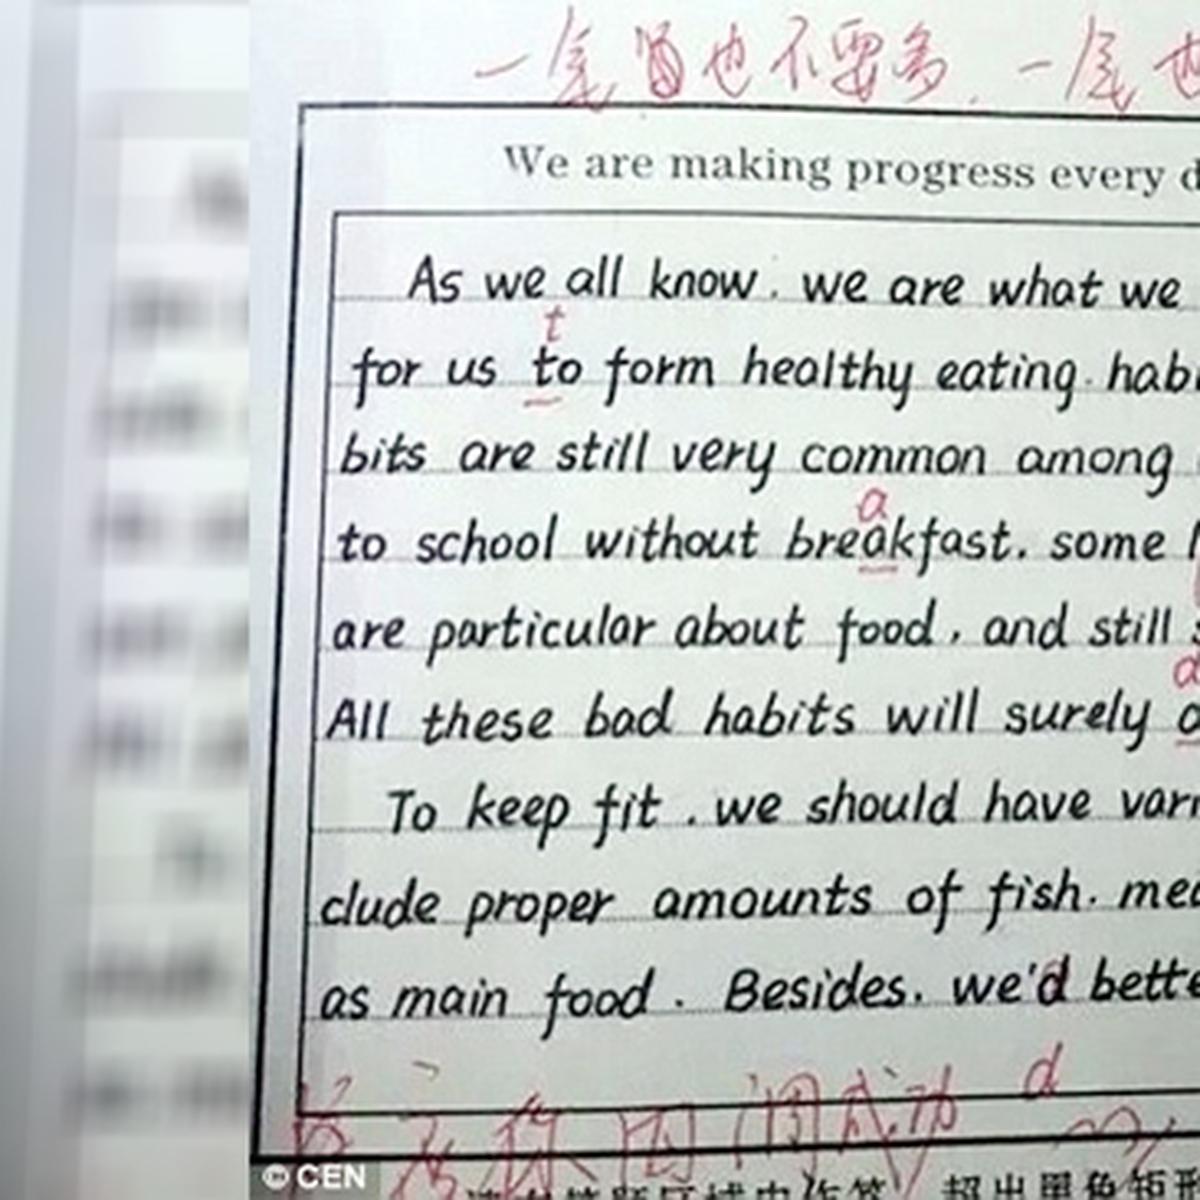 一尾留也不要多,一尾
We are making progress every d
As we all know, we are what we
t
for us to form healthy eating hab
bits are still very common among
a
to school without breakfast, some
are particular about food, and still
d
All these bad habits will surely
To keep fit, we should have vari
clude proper amounts of fish, mea
as main food. Besides, we'd bette
d
成功
© CEN
超出黑色矩形